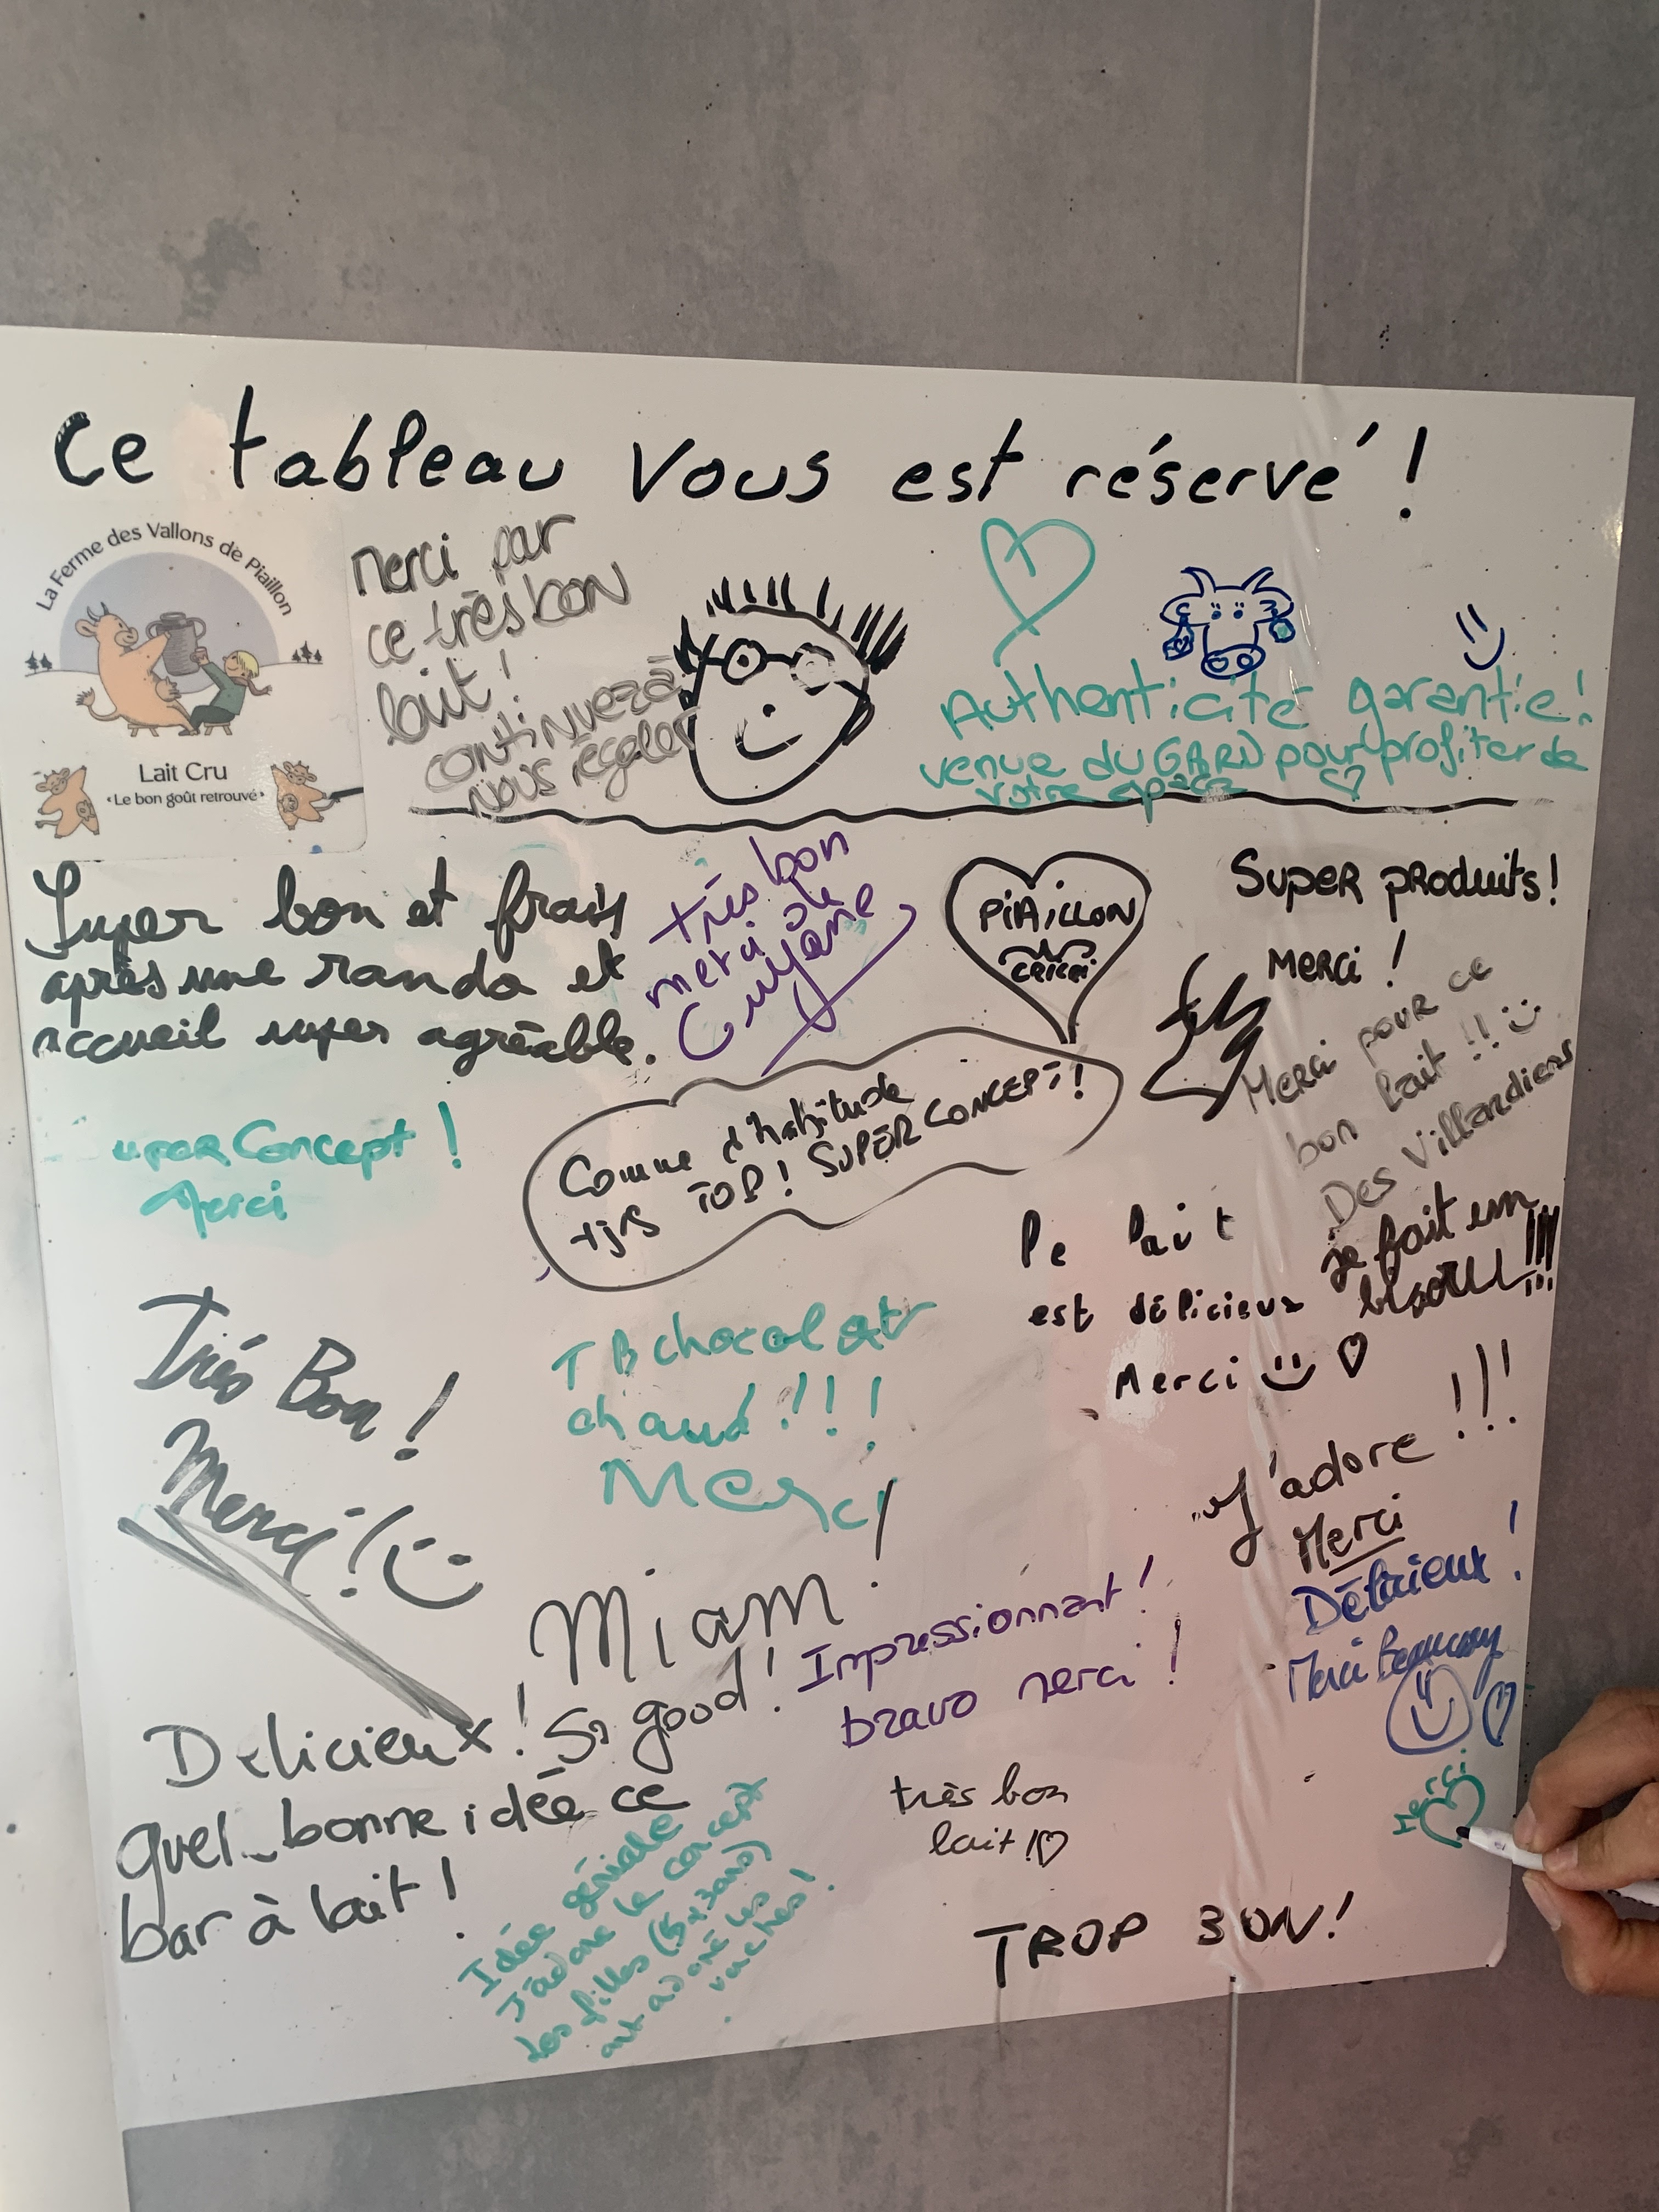 Ce tableau vous est réservé !
La Ferme des Vallons de Piaillon
Lait Cru
‹Le bon goût retrouvé›
merci par
ce très bon
lait !
continuez à
nous régaler
Authenticité garantie !
venue du GARD pour profiter de
votre espace
Super bon et frais
après une rando et
accueil super agréable.
très bon
merci de
Guyane
PiAiLLON
Super produits !
Merci !
Merci pour ce
bon lait !! :)
Des Villardiens
uper Concept !
Merci
Comme d'habitude
tjrs TOP ! SUPER CONCEPT !
le lait
est délicieux
Merci :) ♡
je fait un
!!!
Très Bon !
Merci ! :)
TB chocolat
chaud !!!
Merci
J'adore !!!
Merci
Délicieux !
Merci Beaucoup
♡
Miam !
Impressionnant !
bravo merci !
Delicieux !
So good !
quel bonne idée ce
bar à lait !
Idée géniale
J'adore le concept
Les filles (5 et 3 ans)
ont adoré les
vaches !
très bon
lait !♡
Merci
TROP BON !